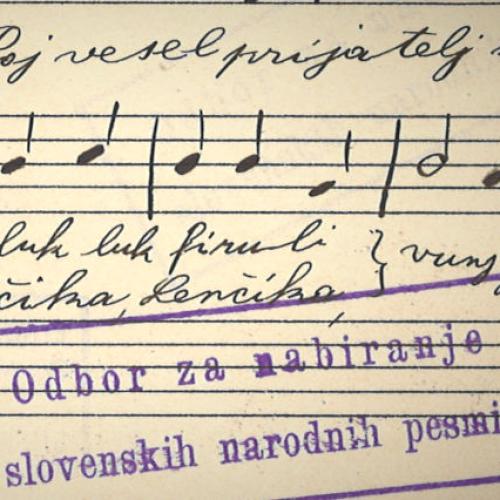 Poj vesel prijatelj
luk luk firuli } vunj
čika, Lenčika,
Odbor za nabiranje
slovenskih narodnih pesmi